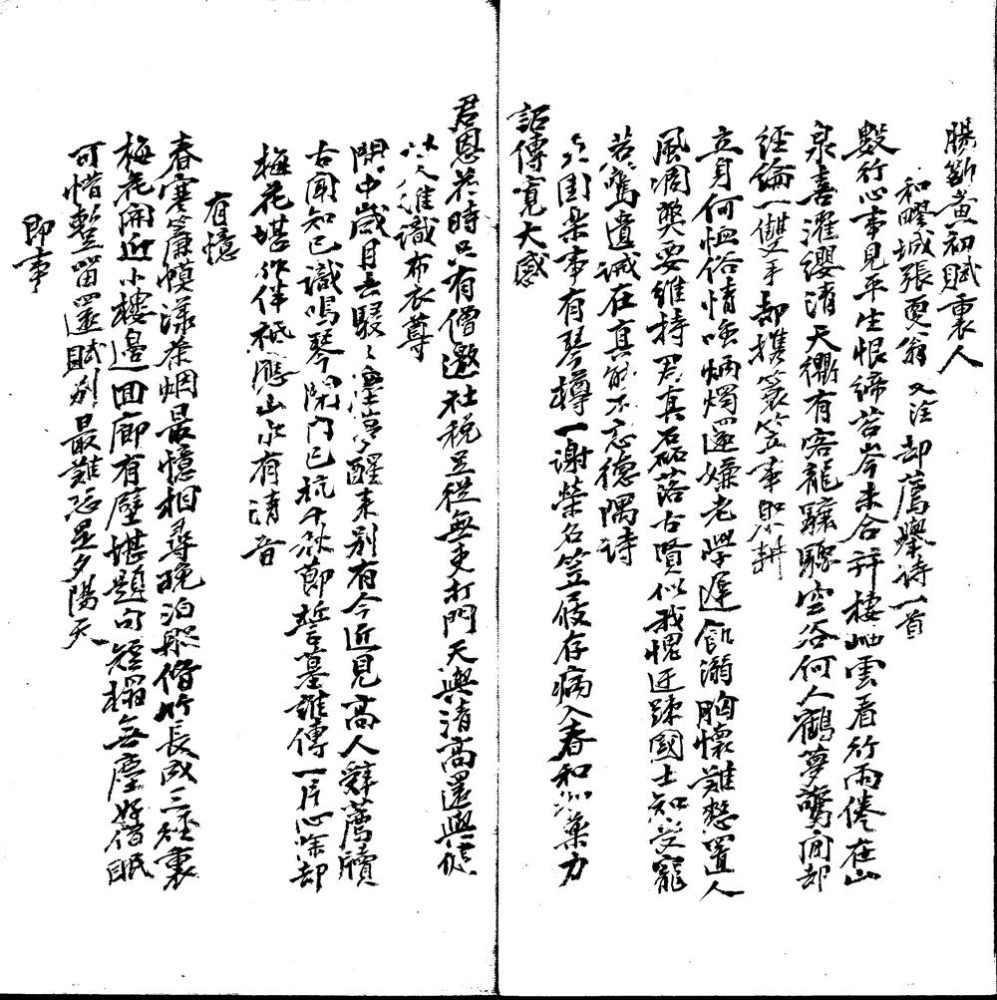 腸斷黃初賦裏人
和疁城張更翁又注却薦舉詩一首
數行心事見平生恨締苔岑未合并棲岫雲看行雨倦在山
泉喜濯纓清天衢有客龍驤驟空谷何人鶴夢驚閒却
經綸一雙手却携簑笠事躬耕
立身何恤俗情嗤炳燭還嫌老學遲飢溺胸懷難愁置人
風凋獎妥維持君真磊落古賢似我愧迂疎國士知受寵
若驚遺誡在真能不忘德隅詩
丘園樂事有琴樽一謝榮名笠屐存病入春和添藥力
詔傳寬大感
君恩花時只有僧邀社稅足從無吏打門天與清高還與健
从人誰識布衣尊
閒中歲月去駸々塵夢醒来別有今近見高人辭薦牘
古聞知已識鳴琴閑門已抗千秋節誓墓誰傳一片心除却
梅花堪作伴祗應山水有清音
有憶
春寒簾幙漾茶烟最憶相尋晚泊船脩竹長成三徑裏
梅花開近小樓邊回廊有壁堪題句短榻無塵好借眠
可惜暫留還賦別最難忘是夕陽天
即事